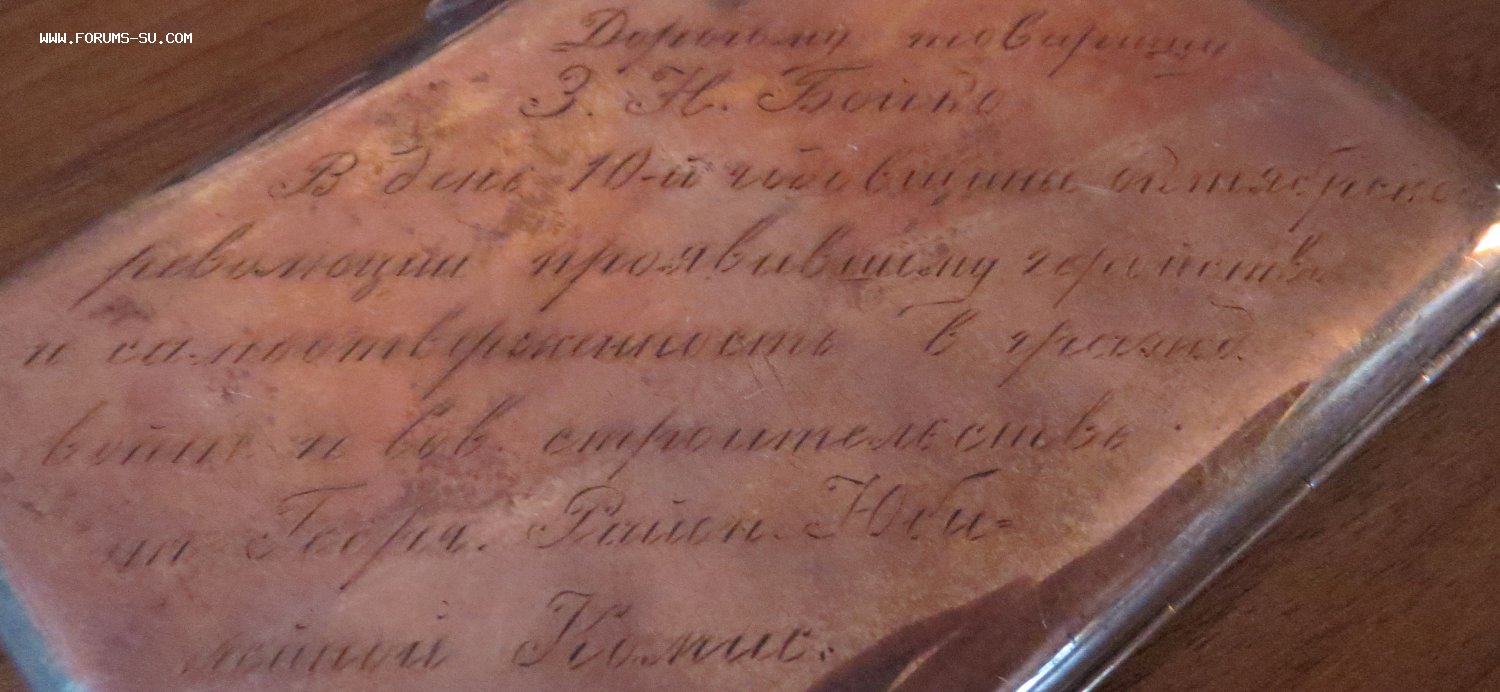 WWW.FORUMS-SU.COM
Дорогому товарищу
З. Н. Бойко
В день 10-й годовщины октябрьско
революции проявившему геройств
и самоотверженность в гражд.
войне и вов. строительстве
на Георг. Район. Юби=
лейной Комис.